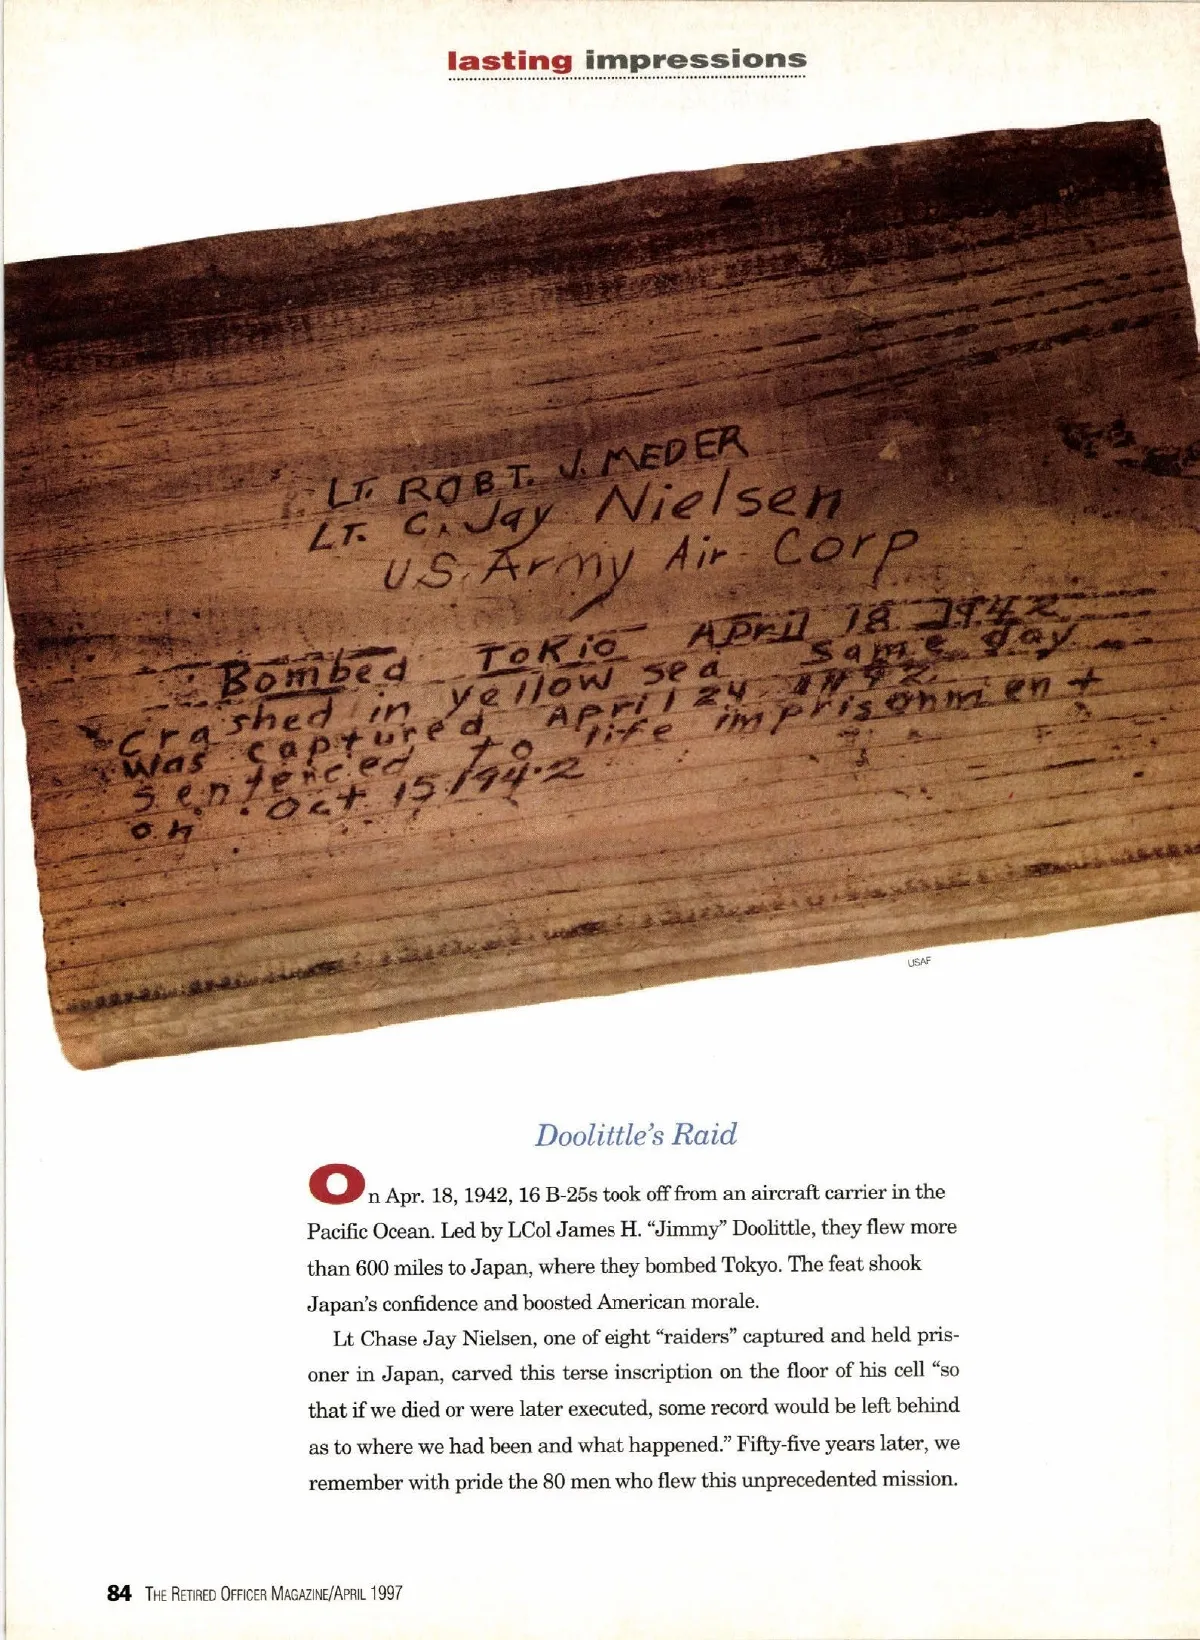 lasting impressions
LT. ROBT. J. MEDER
LT. C. Jay Nielsen
U.S. Army Air Corp
Bombed Tokio April 18 1942
Crashed in yellow sea same day
was captured April 24 1942
sentenced to life imprisonment
on Oct 15 1942
USAF
Doolittle's Raid
On Apr. 18, 1942, 16 B-25s took off from an aircraft carrier in the
Pacific Ocean. Led by LCol James H. “Jimmy” Doolittle, they flew more
than 600 miles to Japan, where they bombed Tokyo. The feat shook
Japan's confidence and boosted American morale.
Lt Chase Jay Nielsen, one of eight “raiders” captured and held pris-
oner in Japan, carved this terse inscription on the floor of his cell “so
that if we died or were later executed, some record would be left behind
as to where we had been and what happened.” Fifty-five years later, we
remember with pride the 80 men who flew this unprecedented mission.
84 THE RETIRED OFFICER MAGAZINE/APRIL 1997